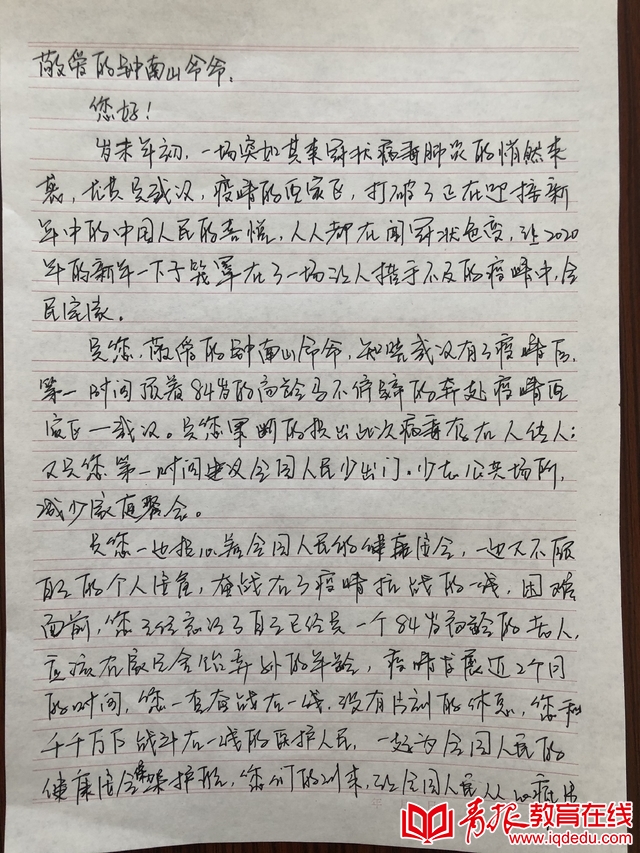 敬爱的钟南山爷爷,
您好!
岁末年初,一场突如其来冠状病毒肺炎的悄然来
袭,尤其是武汉,疫情的重灾区,打破了正在迎接新
年中的中国人民的喜悦,人人都在闻冠状色变,让2020
年的新年一下子笼罩在了一场让人措手不及的疫情中,全
民宅家。
是您,敬爱的钟南山爷爷,知晓武汉有了疫情后,
第一时间顶着84岁的高龄马不停蹄的奔赴疫情重
灾区—武汉。是您果断的提出此次病毒存在人传人;
又是您第一时间建议全国人民少出门,少去公共场所,
减少家庭聚会。
是您一心担心着全国人民的健康安全,一心又不顾
自己的个人安危,奋战在了疫情抗战的一线,困难
面前,您已经忘记了自己已经是一个84岁高龄的老人,
应该在家已含饴弄孙的年龄,疫情发展近2个月
的时间,您一直奋战在一线,没有片刻的休息,您和
千千万万战斗在一线的医护人员,一起为全国人民的
健康安全保驾护航,您们的到来,让全国人民从
青报教育在线
www.iqdedu.com